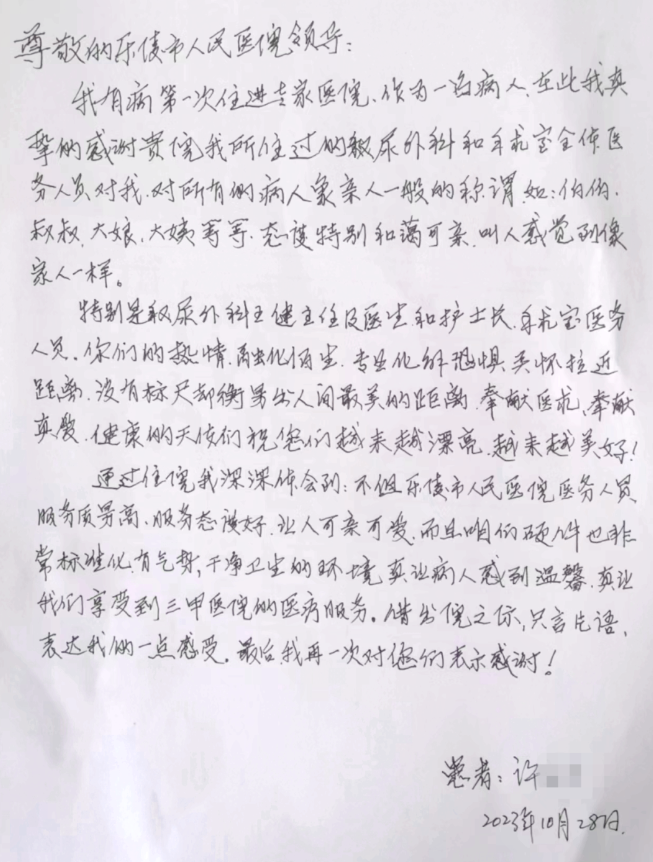 尊敬的乐陵市人民医院领导:
我有病第一次住进专家医院、作为一名病人、在此我真
挚的感谢贵院我所住过的泌尿外科和手术室全体医
务人员对我、对所有的病人象亲人一般的称谓如:伯伯、
叔叔、大娘、大姨等等、态度特别和蔼可亲、叫人感觉到像
家人一样。
特别是泌尿外科王健主任及医生和护士长、手术室医务
人员。你们的热情、融化陌生、专业化解恐惧、关怀拉近
距离、没有标尺却衡量出人间最美的距离、奉献医术、奉献
真爱、健康的天使们祝您们越来越漂亮、越来越美好!
通过住院我深深体会到:不但乐陵市人民医院医务人员
服务质量高、服务态度好、让人可亲可爱、而且咱们硬件也非
常标准化有气势,干净卫生的环境、真让病人感到温馨、真让
我们享受到三甲医院的医疗服务。借出院之际,只言片语,
表达我的一点感受。最后我再一次对您们表示感谢!
患者:许
2023年10月28日.